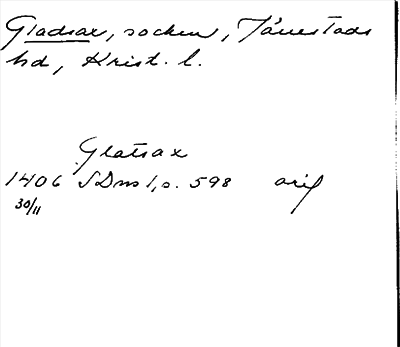 Gladsax, socken, Järrestads
hd, Krist. l.
Glatsax
1406 SDns 1, s. 598 orig
30/11